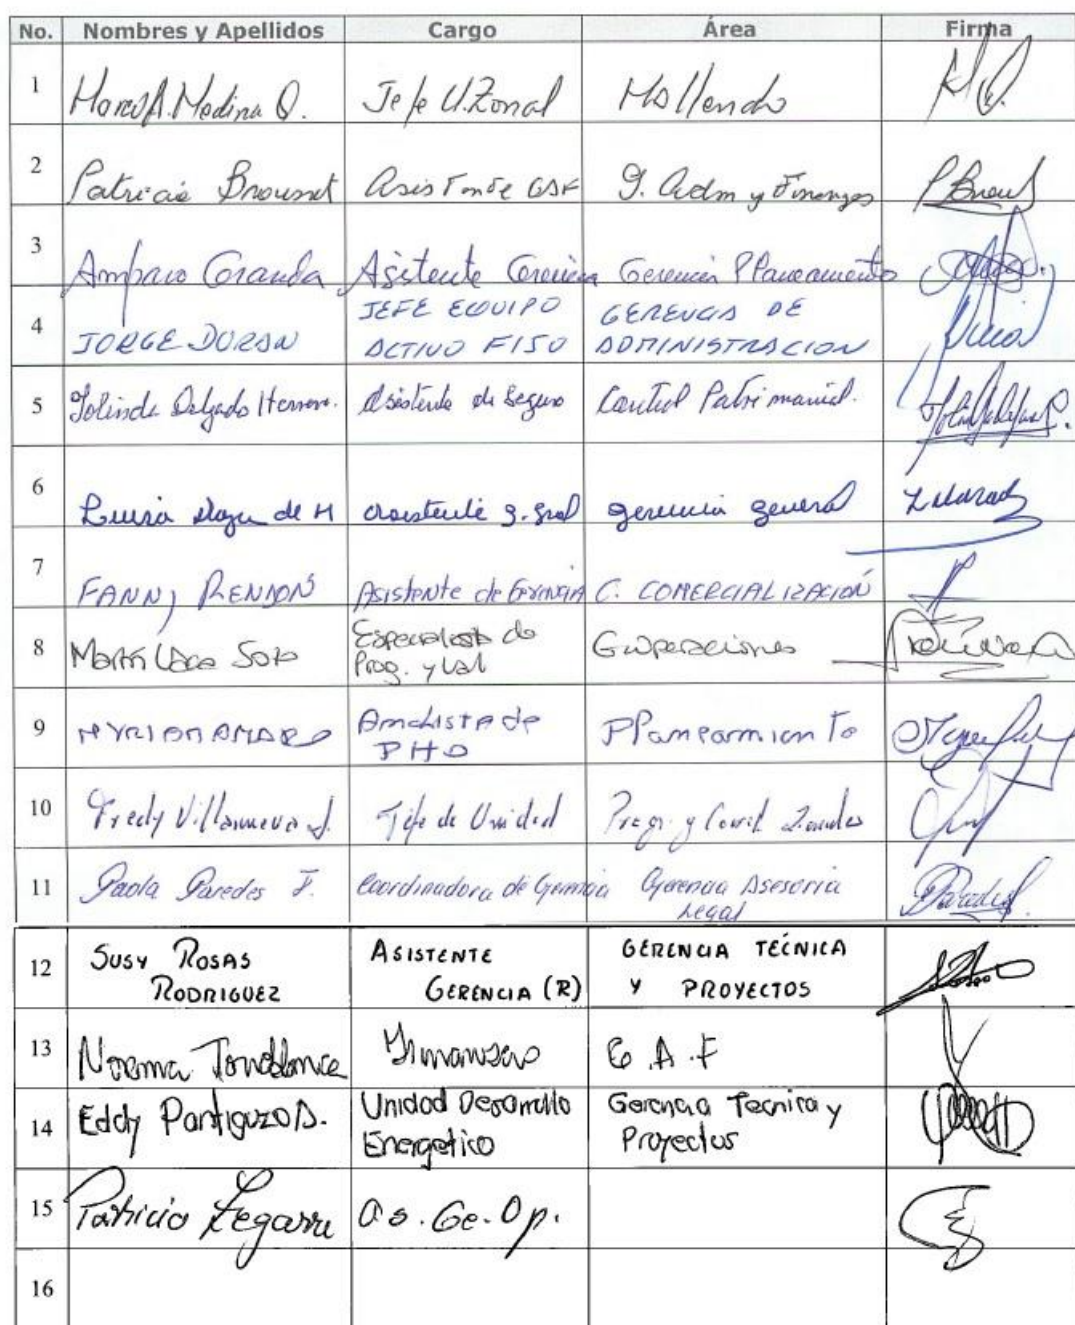 No. Nombres y Apellidos Cargo Área Firma
1 Marco A. Medina Q. Jefe U. Zonal Mollendo
2 Patricia Brousset Asistente GAF G. Adm y Finanzas
3 Amparo Granda Asitente Gerencia Gerencia Planeamiento
4 JORGE DURAN JEFE EQUIPO ACTIVO FIJO GERENCIA DE ADMINISTRACION
5 Yolinda Delgado Herrera. Asistente de Seguro Control Patrimonial.
6 Luisa de H asistente g. gral gerencia general
7 FANNY RENDON Asistente de Gerencia C. COMERCIALIZACIÓN
8 Soto Especialista de Prog. y G. Operaciones
9 MYRIAM AMADO Analista de Planeamiento
10 Fredy Villanueva J. Jefe de Unidad Progr. y Zonales
11 Paola Paredes F. Coordinadora de Gerencia Gerencia Asesoria Legal
12 SUSY ROSAS RODRIGUEZ ASISTENTE GERENCIA (R) GERENCIA TECNICA Y PROYECTOS
13 Norma Torreblanca G.A.F
14 Eddy Pantigozo D. Unidad Desarrollo Energetico Gerencia Tecnica y Proyectos
15 Patricia Zegarra As. Ge. Op.
16